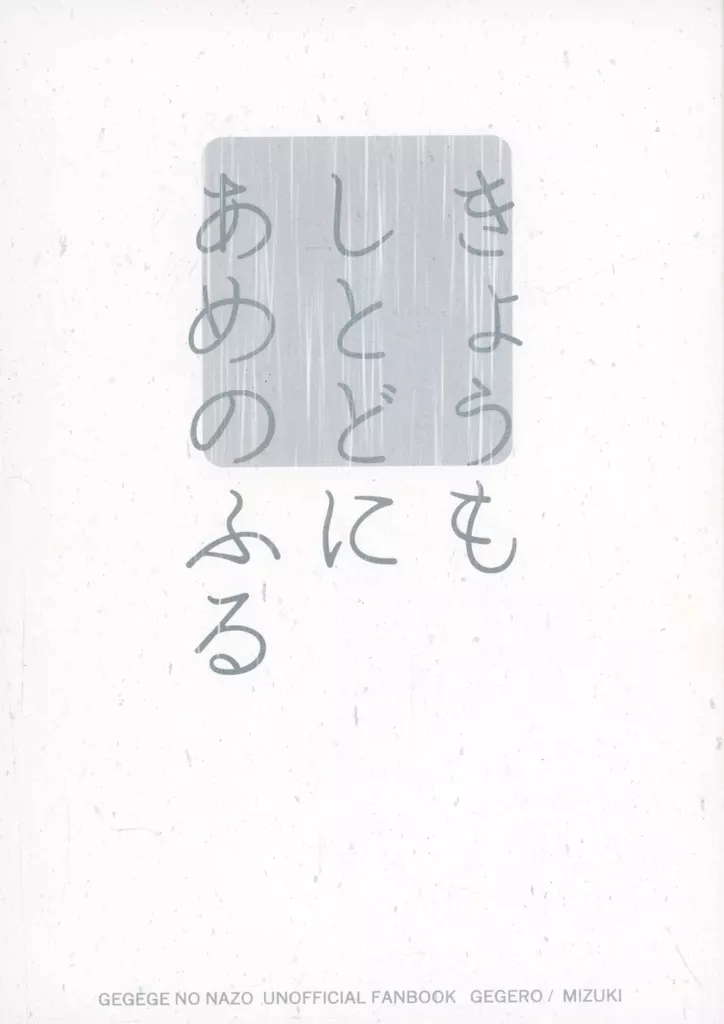 きょうも
しとどに
あめのふる
GEGEGE NO NAZO UNOFFICIAL FANBOOK GEGERO / MIZUKI